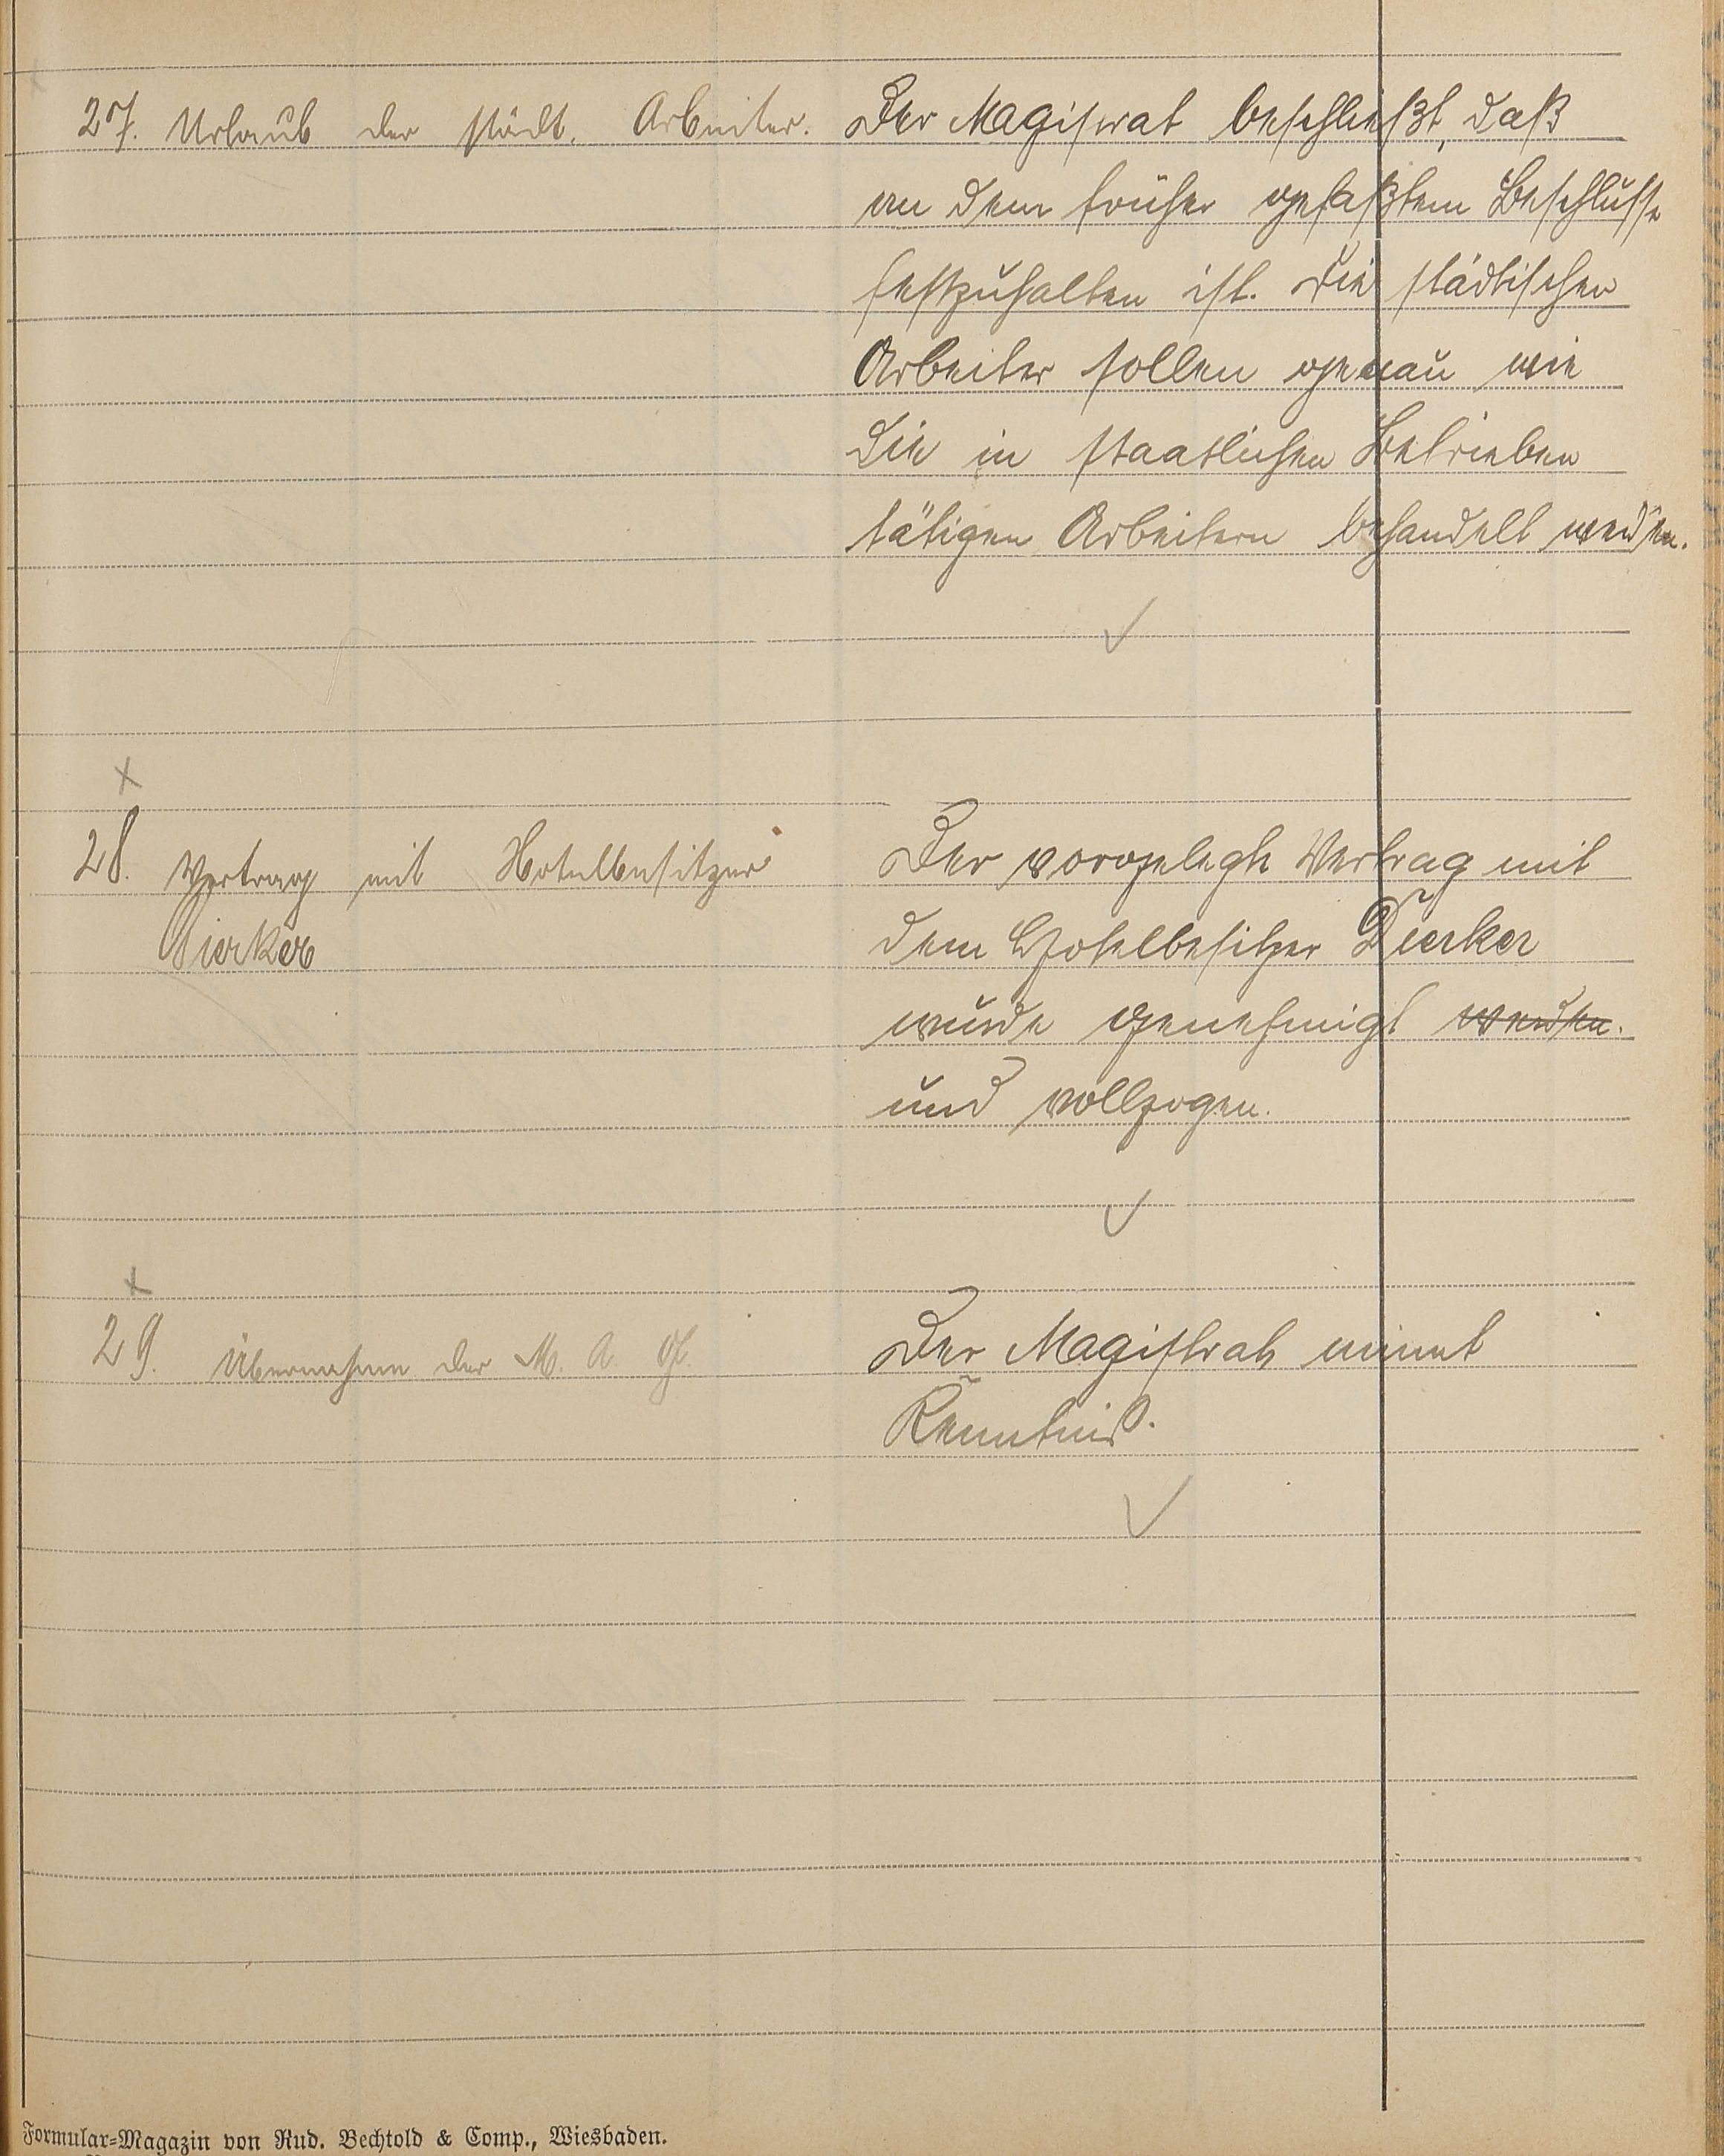 27. Urlaub der städt. Arbeiter.
Der Magistrat beschließt, daß
an dem früher gefaßtem Beschlusse
festzuhalten ist. Die städtischen
Arbeiter sollen genau wie
die in staatlichen Betrieben
tätigen Arbeitern behandelt werden.
28. Vertrag mit Hotelbesitzer
Dierker
Der vorgelegte Vertrag mit
dem Hotelbesitzer Dierker
wurde genehmigt werden.
und vollzogen.
29. Übernahme der M. A. G.
Der Magistrat nimmt
Kenntniß.
Formular=Magazin von Rud. Bechtold & Comp., Wiesbaden.